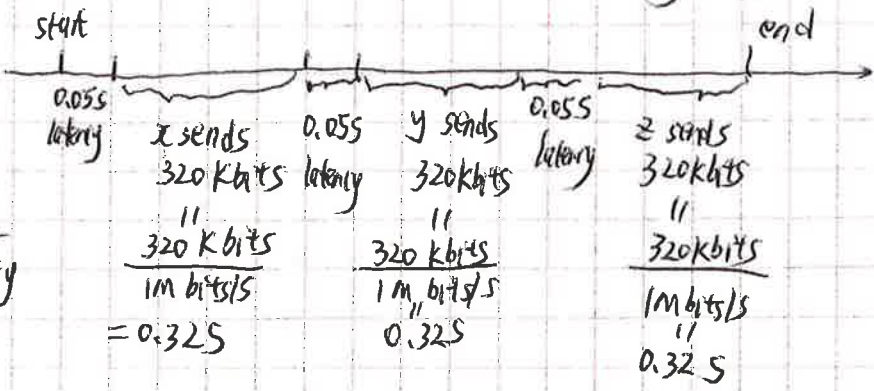 start
end
0.05s
latency
x sends
320 Kbits
"
320 Kbits
1M bits/s
= 0.32S
0.05S
latency
y sends
320kbits
"
320 kbits
1 M bits/s
"
0.32S
0.05S
latency
z sends
320kbits
"
320kbits
1Mbits/s
"
0.32 S
y